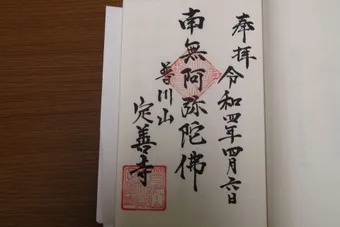 奉拝 令和四年四月六日
南無阿弥陀佛
普川山
定善寺